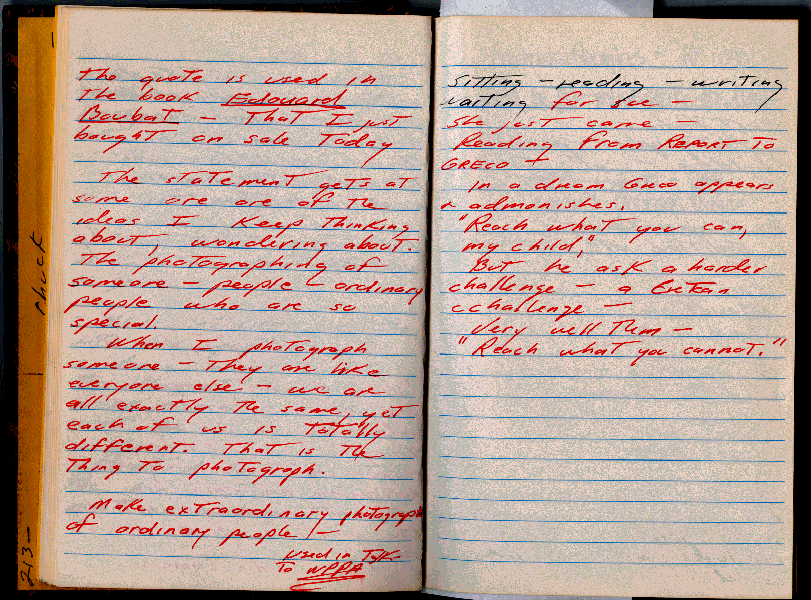 chuck
213-
The quote is used in
The book Edouard
Boubat - That I just
bought on sale Today
The statement gets at
some are are of the
ideas I keep thinking
about, wondering about.
The photographing of
someone - people - ordinary
people who are so
special.
When I photograph
someone - They are like
everyone else - we are
all exactly the same, yet
each of us is totally
different. That is the
Thing To photograph.
Make extraordinary photograph
of ordinary people -
used in Talk-
To NPPA
sitting - reading - writing
waiting for
She just came -
Reading from REPORT TO
GRECO +
In a dream Greco appears
& admonishes.
"Reach what you can,
my child,"
But he ask a harder
challenge - a Cretan
cchallenge -
Very well Them -
"Reach what you cannot."